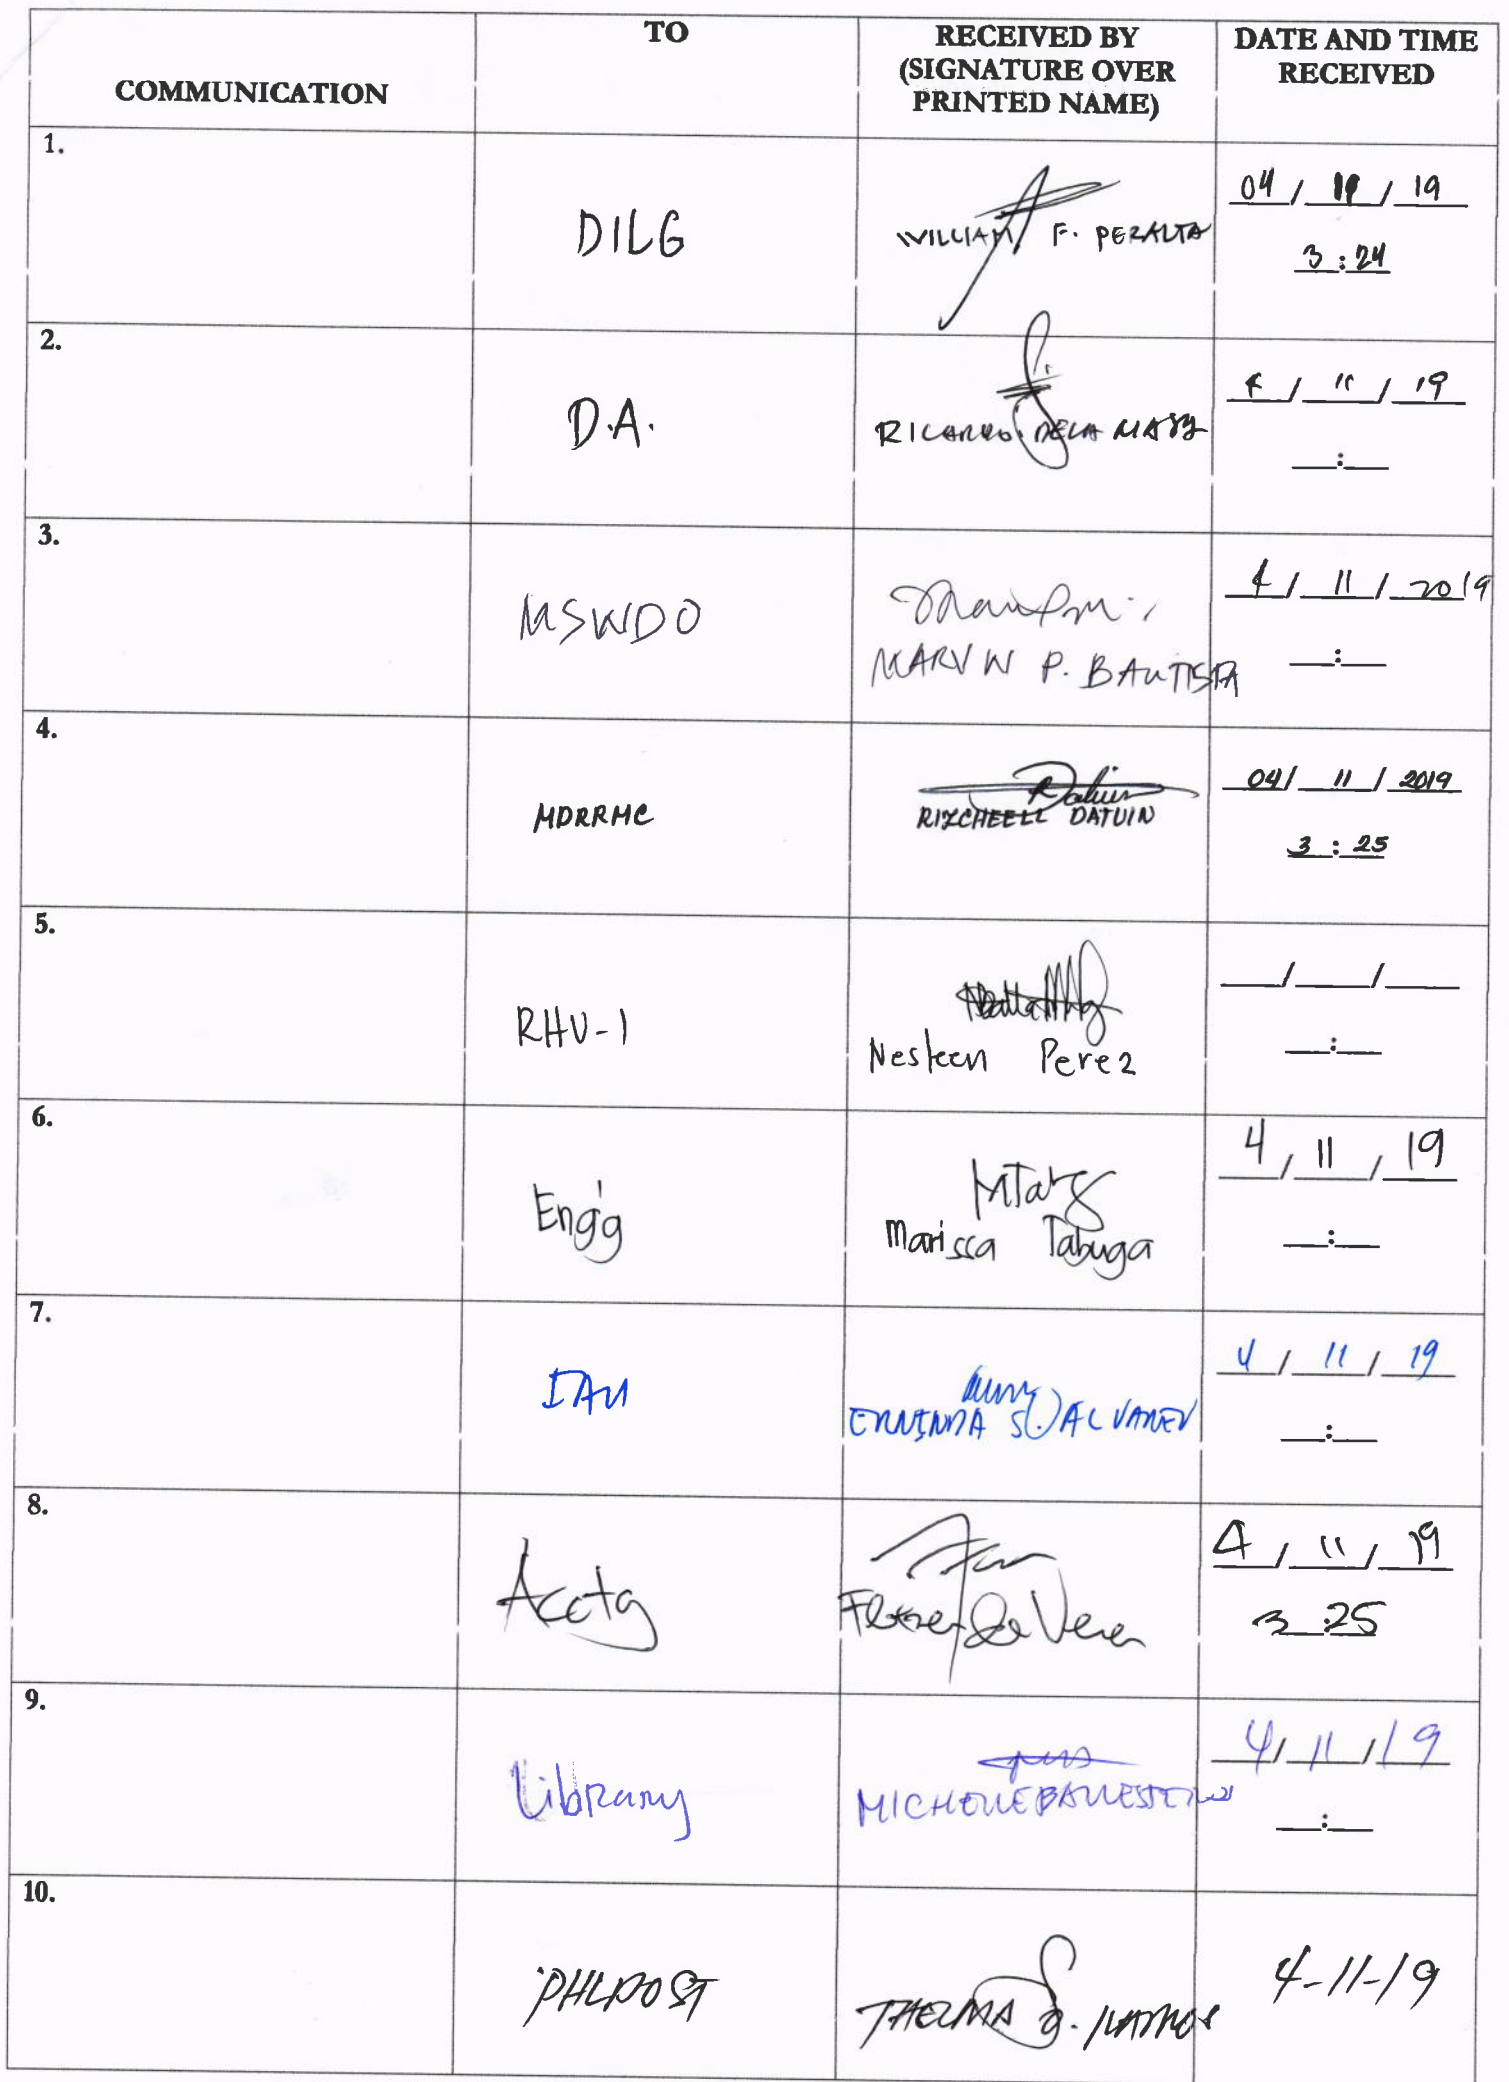 COMMUNICATION
TO
RECEIVED BY
(SIGNATURE OVER
PRINTED NAME)
DATE AND TIME
RECEIVED
1.
DILG
WILLIAM F. PERALTA
04 / 11 / 19
3 : 24
2.
D.A.
RICARDO DELA
4 / 11 / 19
__:__
3.
MSWDO
MARVIN P. BAUTISTA
4 / 11 / 2019
__:__
4.
MDRRMC
RIZCHEELL DATUIN
04 / 11 / 2019
3 : 25
5.
RHU-1
Nesteen Perez
__/__/__
__:__
6.
Eng'g
Marissa Tabuga
4 / 11 / 19
__:__
7.
ERNINDA S. ALVAREZ
4 / 11 / 19
__:__
8.
Acctg
De Vera
4 / 11 / 19
3 :25
9.
Library
MICHELLE BALLESTEROS
4 / 11 / 19
__:__
10.
PHLPOST
THELMA S.
4-11-19